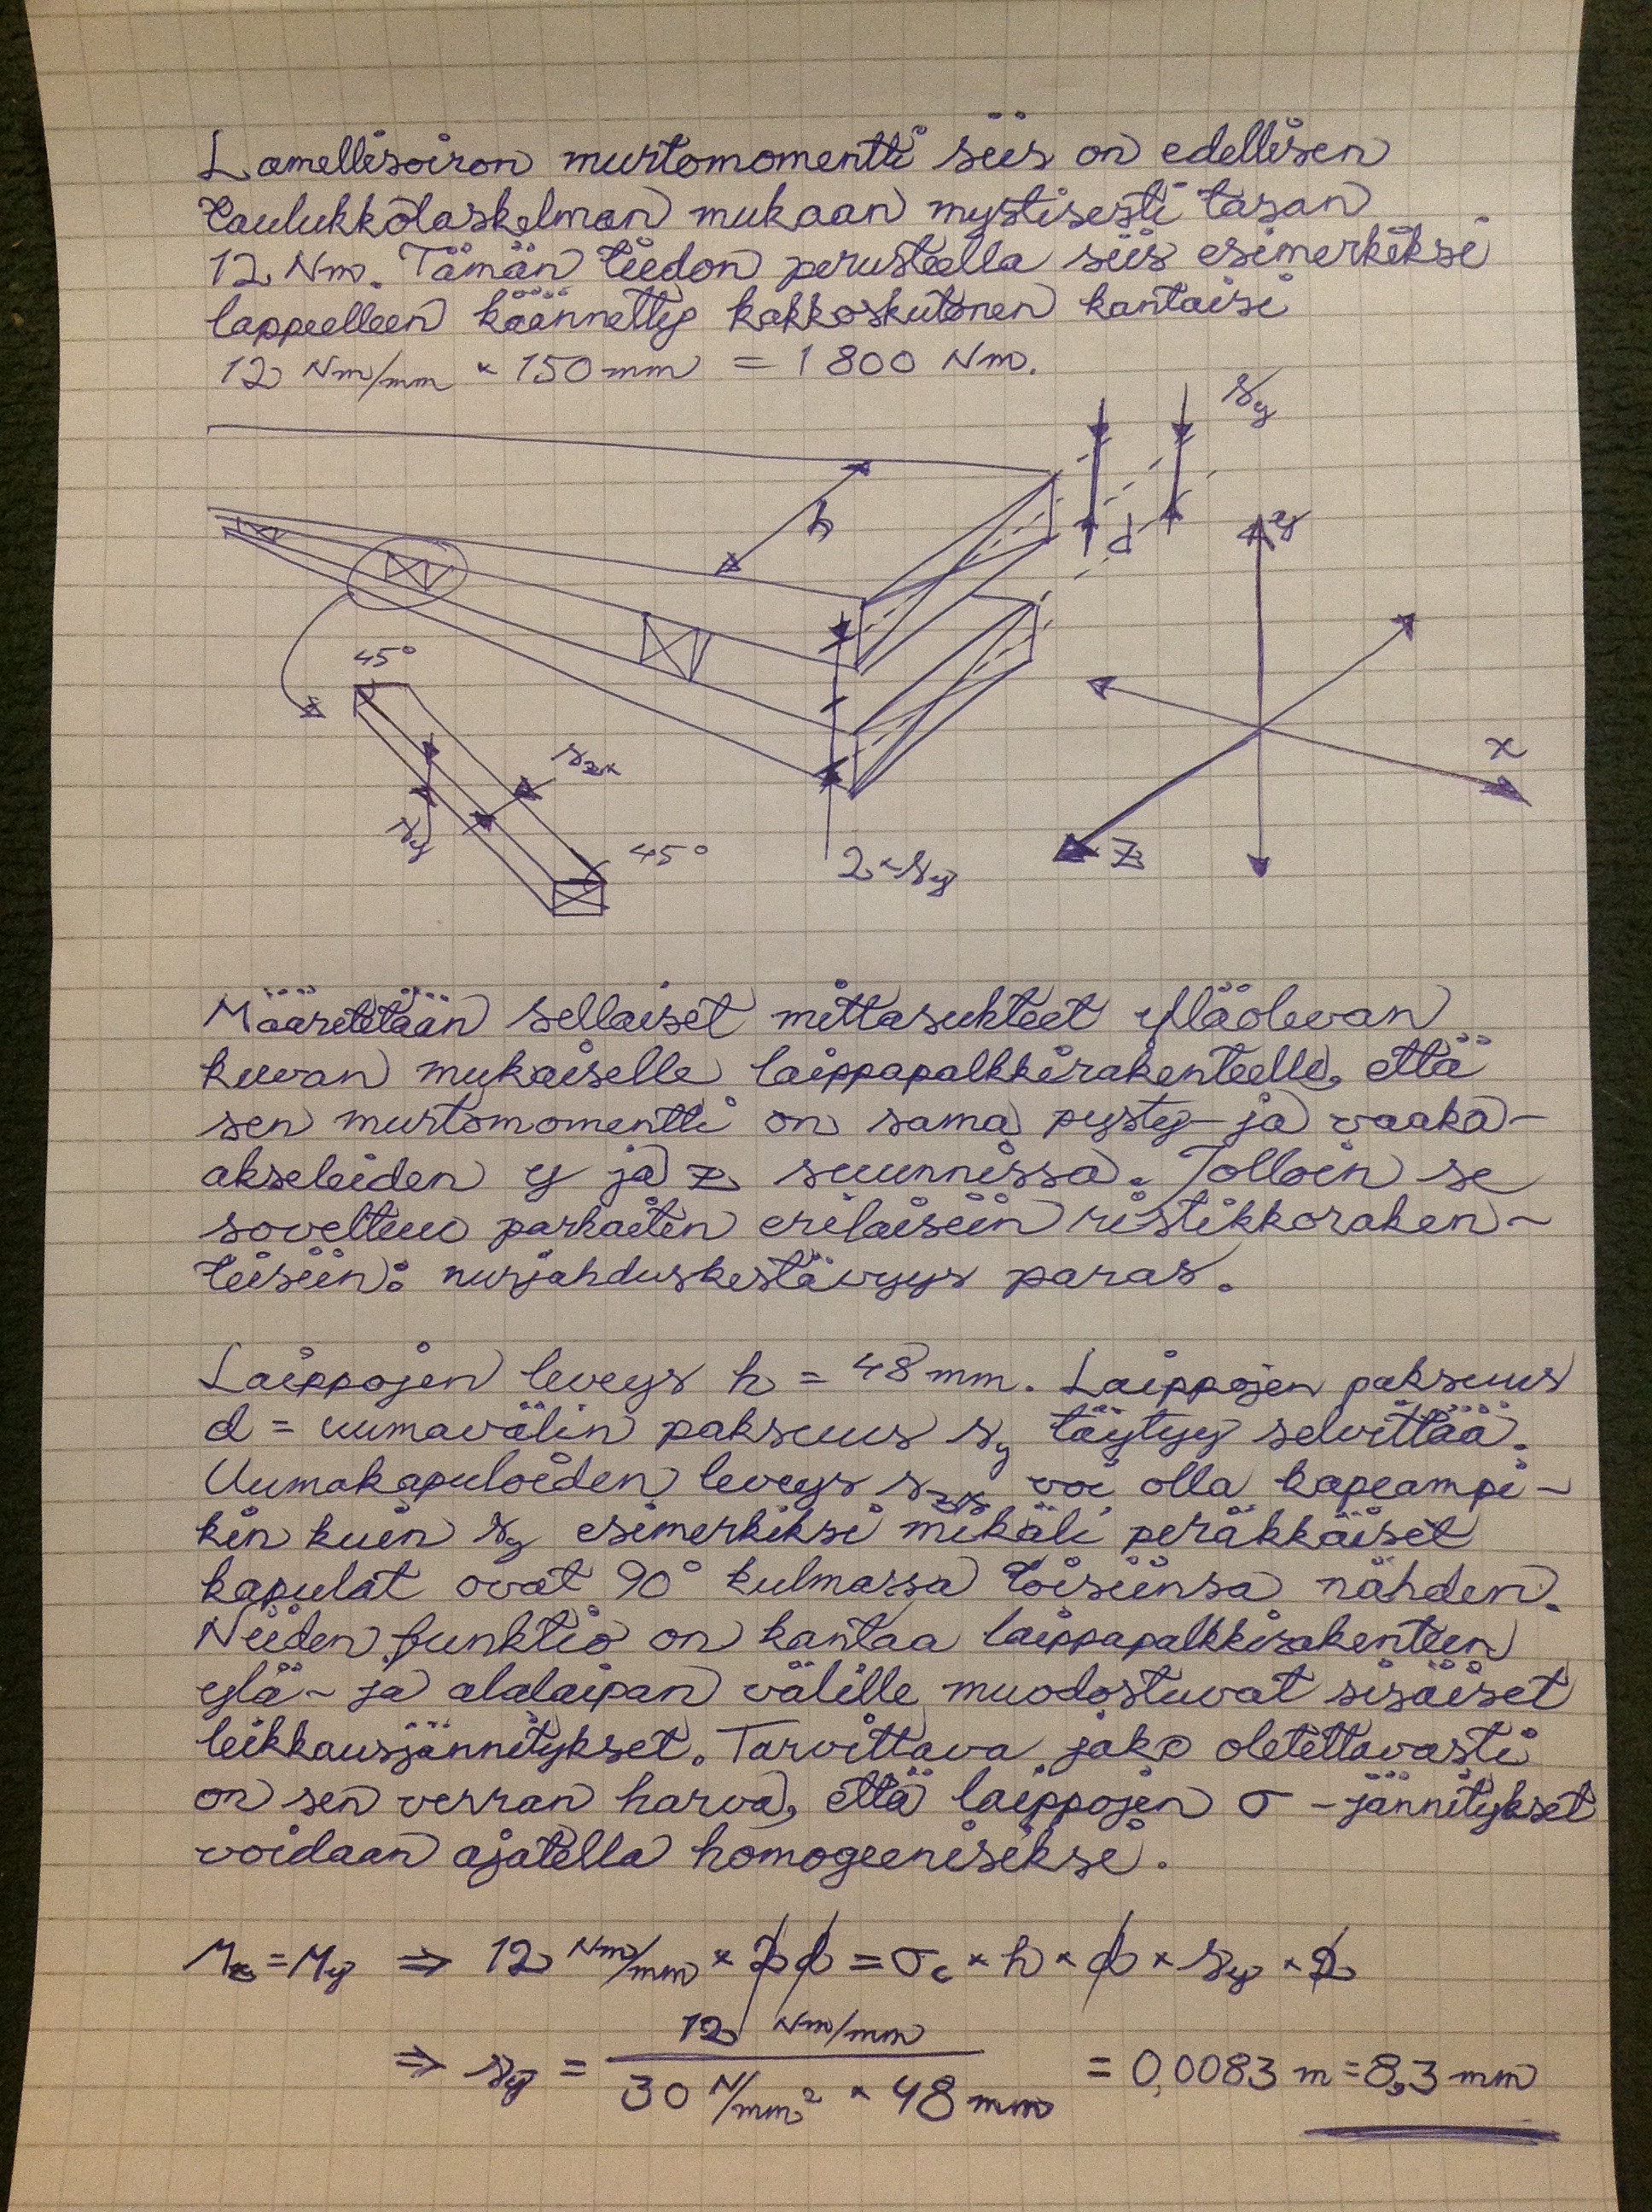 Lamellisoiron murtomomentti siis on edellisen
taulukkolaskelman mukaan mystisesti tasan
12 Nm. Tämän tiedon perusteella siis esimerkiksi
lappeelleen käännetty kakkoskutonen kantaisi
12 Nm/mm × 150 mm = 1 800 Nm.
s_y
h
d
y
45°
s_zx
x
s_y
45°
2 × s_y
z
Määritetään sellaiset mittasuhteet ylläolevan
kuvan mukaiselle laippapalkkirakenteelle, että
sen murtomomentti on sama pysty- ja vaaka-
akseleiden y ja z suunnissa. Tolloin se
soveltuu parhaiten erilaisiin ristikkoraken-
teisiin: nurjahduskestävyys paras.
Laippojen leveys h = 48 mm. Laippojen paksuus
d = uumavälin paksuus s_y täytyy selvittää.
Uumakapuloiden leveys s_zx voi olla kapeampi-
kin kuin s_y esimerkiksi mikäli peräkkäiset
kapulat ovat 90° kulmassa toisiinsa nähden.
Niiden funktio on kantaa laippapalkkirakenteen
ylä- ja alalaipan välille muodostuvat sisäiset
leikkausjännitykset. Tarvittava jako oletettavasti
on sen verran harva, että laippojen σ -jännitykset
voidaan ajatella homogeenisiksi.
M_z = M_y ⇒ 12 Nm/mm × 2 d = σ_c × h × d × s_y × 2
⇒ s_y = 12 Nm/mm / 30 N/mm² × 48 mm = 0,0083 m = 8,3 mm